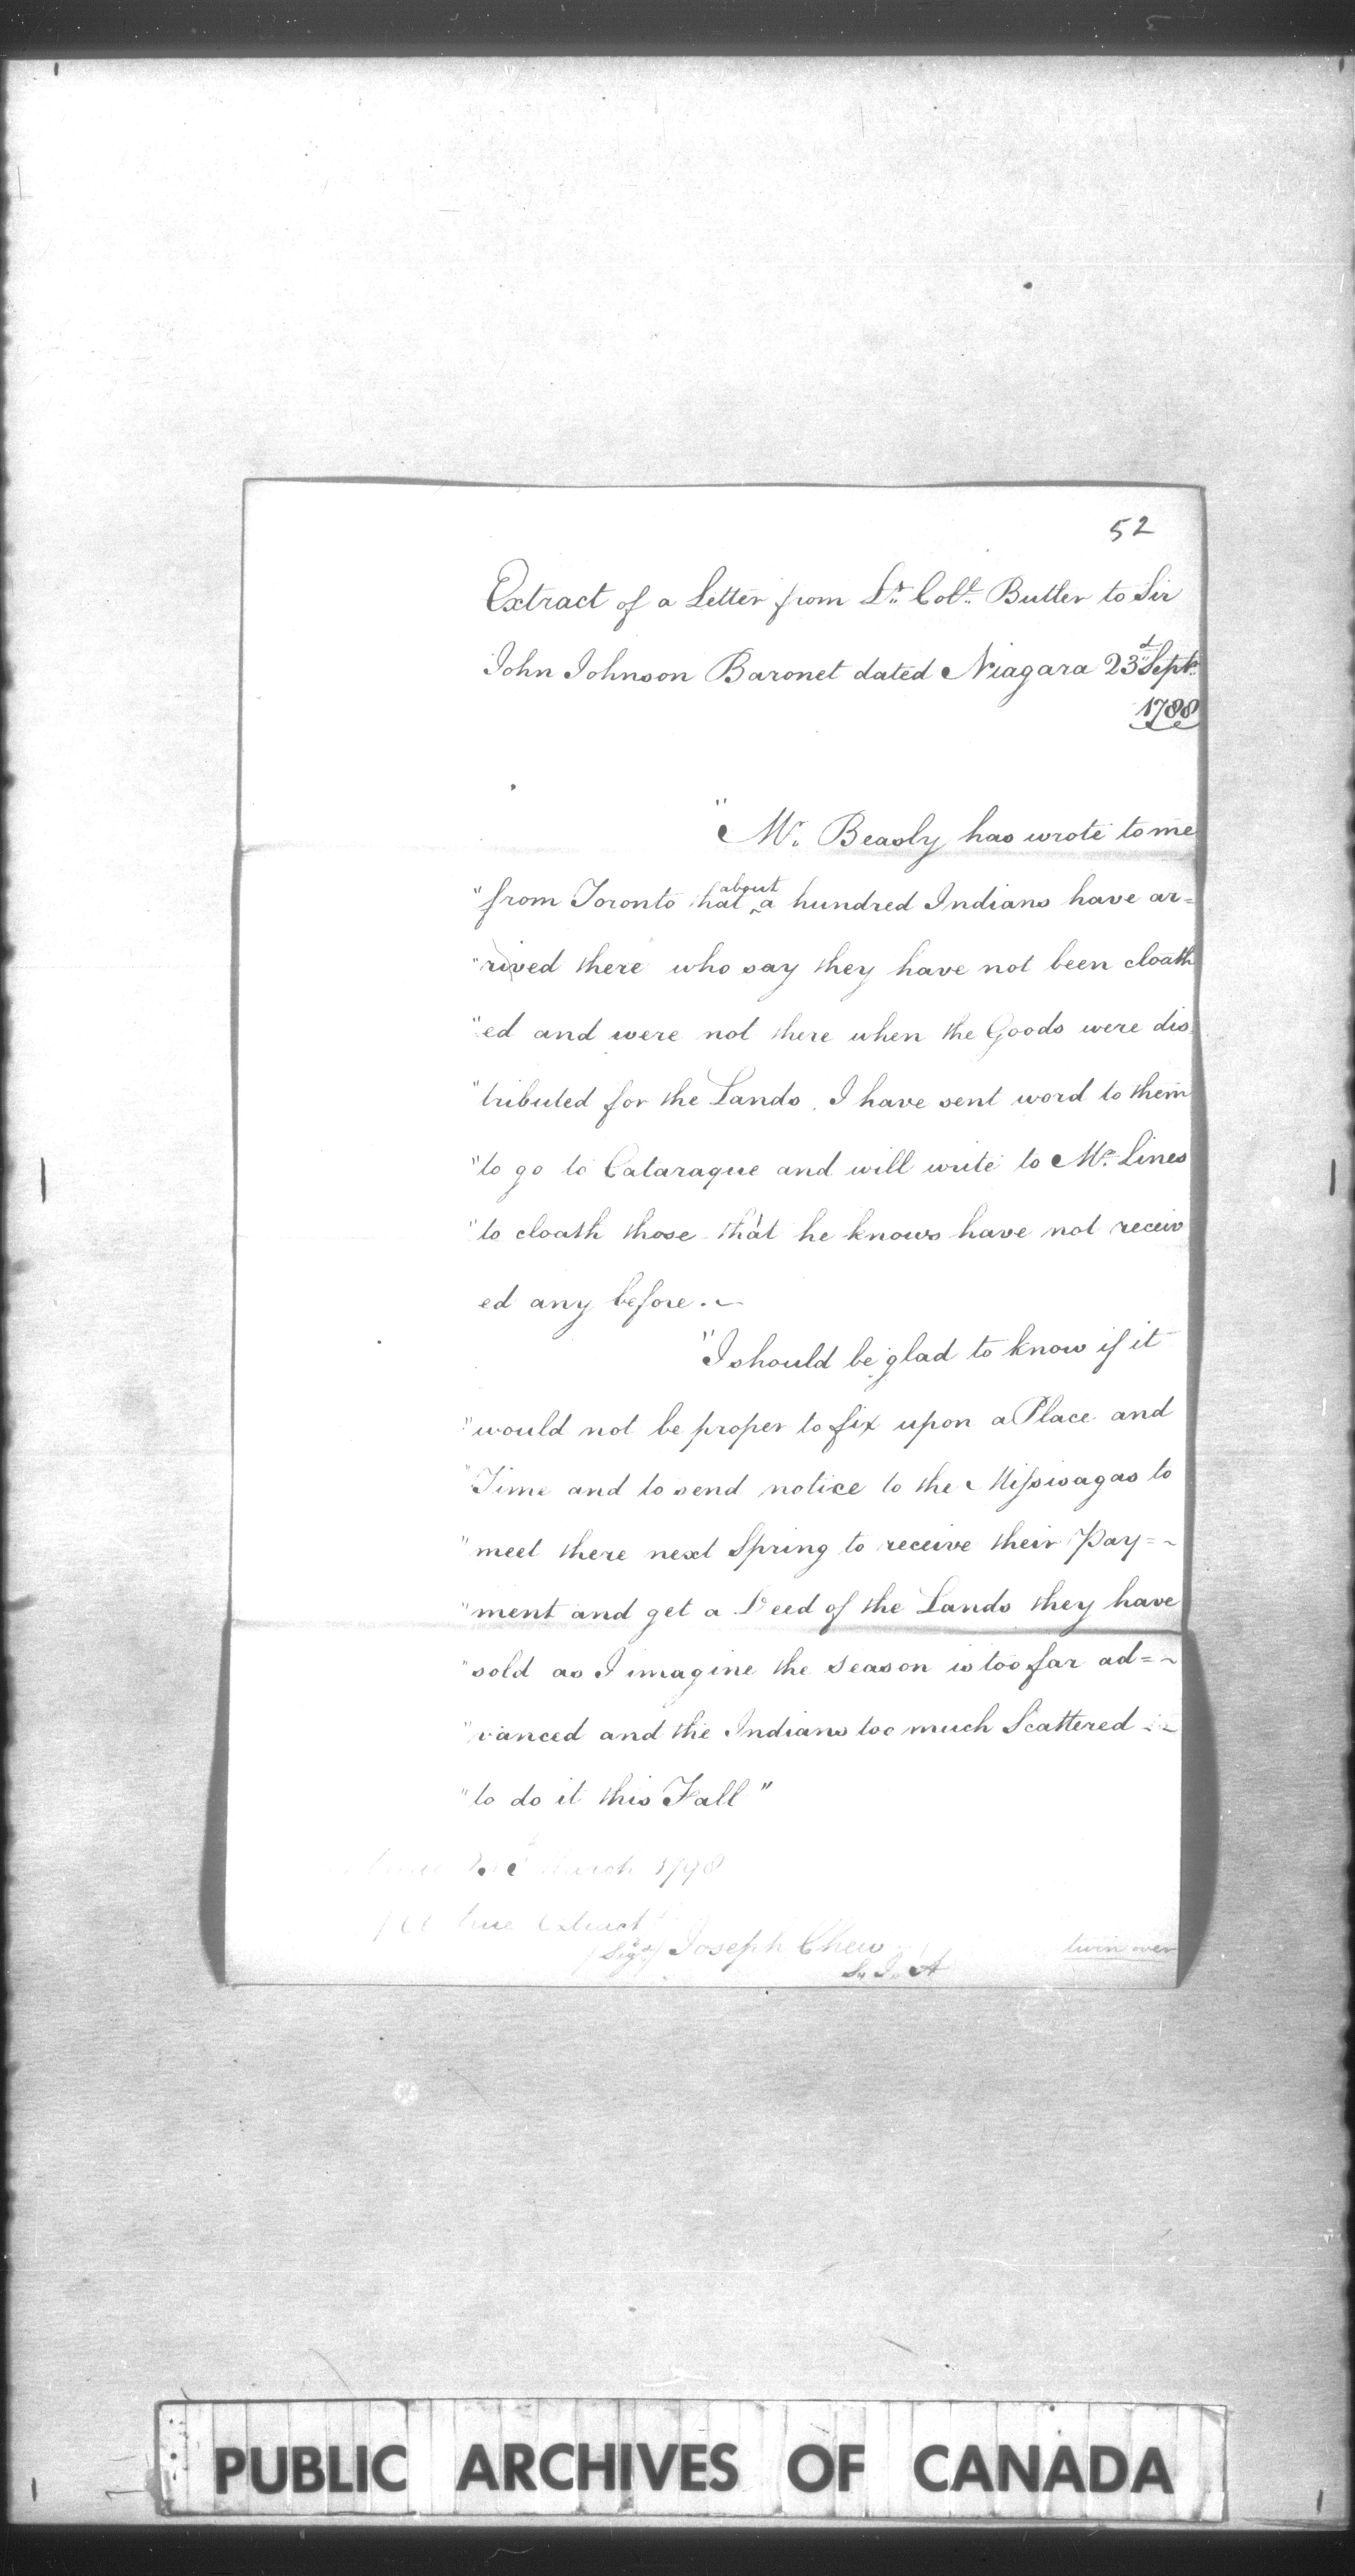 52
Extract of a Letter from Lt. Coll. Butler to Sir
John Johnson Baronet dated Niagara 23d Septr.
1788
"Mr. Beasly has wrote to me
"from Toronto that about a hundred Indians have ar=
"rived there who say they have not been cloath
"ed and were not there when the Goods were dis
"tributed for the Lands, I have sent word to them
"to go to Cataraque and will write to Mr. Lines
"to cloath those that he knows have not receiv
ed any before.
"I should be glad to know if it
"would not be proper to fix upon a Place and
"Time and to send notice to the Missisagas to
"meet there next Spring to receive their Pay=
"ment and get a Deed of the Lands they have
"sold as I imagine the Season is too far ad=
"vanced and the Indians too much Scattered
"to do it this Fall"
March 1798
A true Extract
(Sigd) Joseph Chew
S. I. A
turn over
PUBLIC ARCHIVES OF CANADA